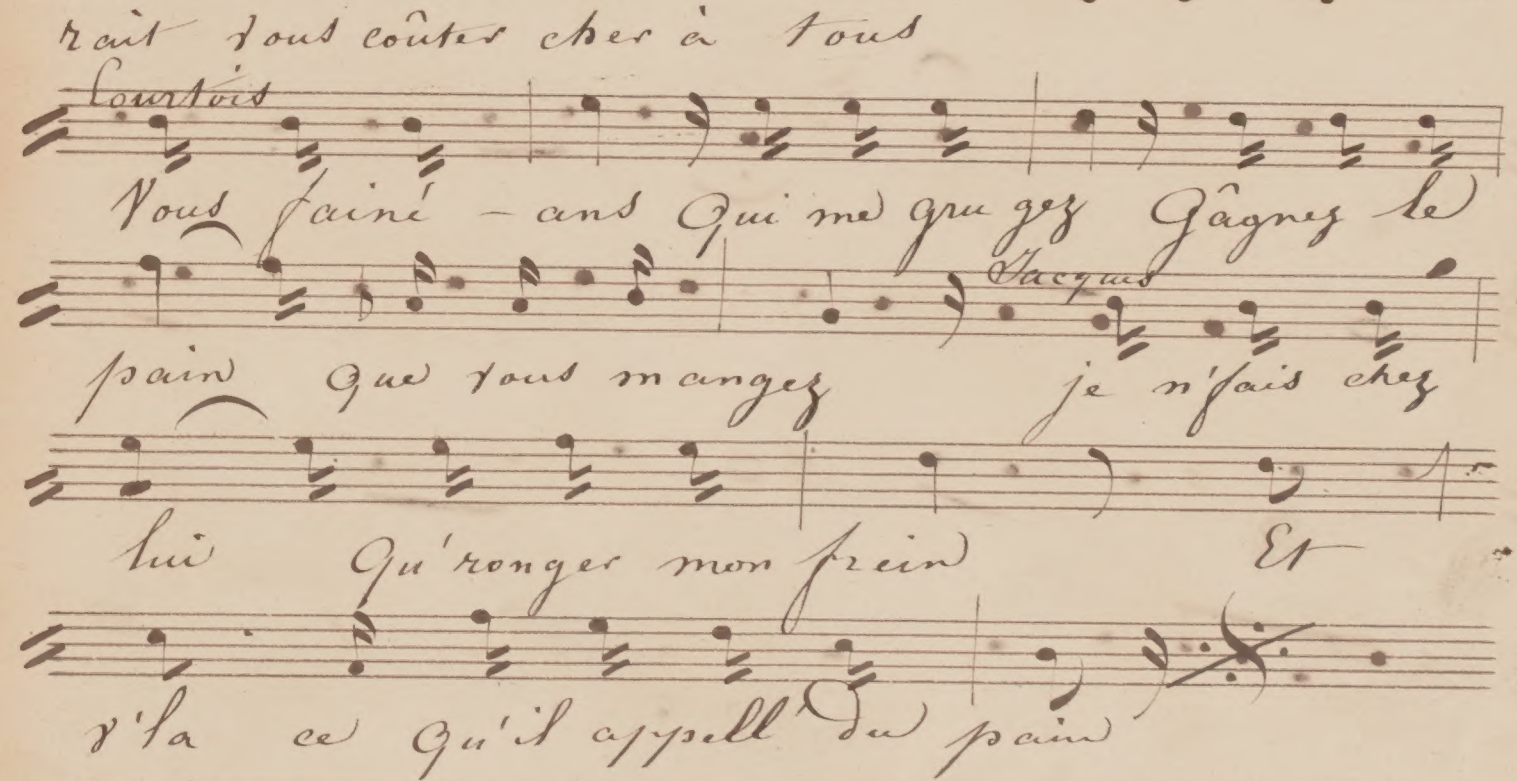 rait vous coûter cher à tous
Courtois
Vous fainé - ans Qui me gru gez Gâgnez le
Jacques
pain que vous mangez je n'fais chez
lui Qu'ronger mon frein Et
v'la ce Qu'il appell' du pain